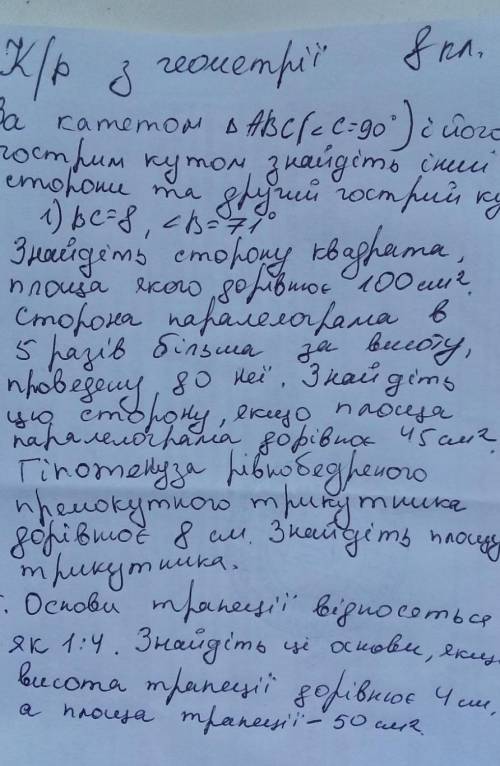 К/р з геометрії 8 кл.
За катетом △ABC(∠C=90°) і його
гострим кутом знайдіть інші
сторони та другий гострий ку
1) BC=8, ∠B=71°
Знайдіть сторону квадрата,
площа якого дорівнює 100 см².
Сторона паралелограма в
5 разів більша за висоту,
проведену до неї. Знайдіть
цю сторону, якщо площа
паралелограма дорівнює 45 см².
Гіпотенуза рівнобедреного
прямокутного трикутника
дорівнює 8 см. Знайдіть площу
трикутника.
Основи трапеції відносяться
як 1:4. Знайдіть ці основи, якщо
висота трапеції дорівнює 4 см,
а площа трапеції - 50 см².